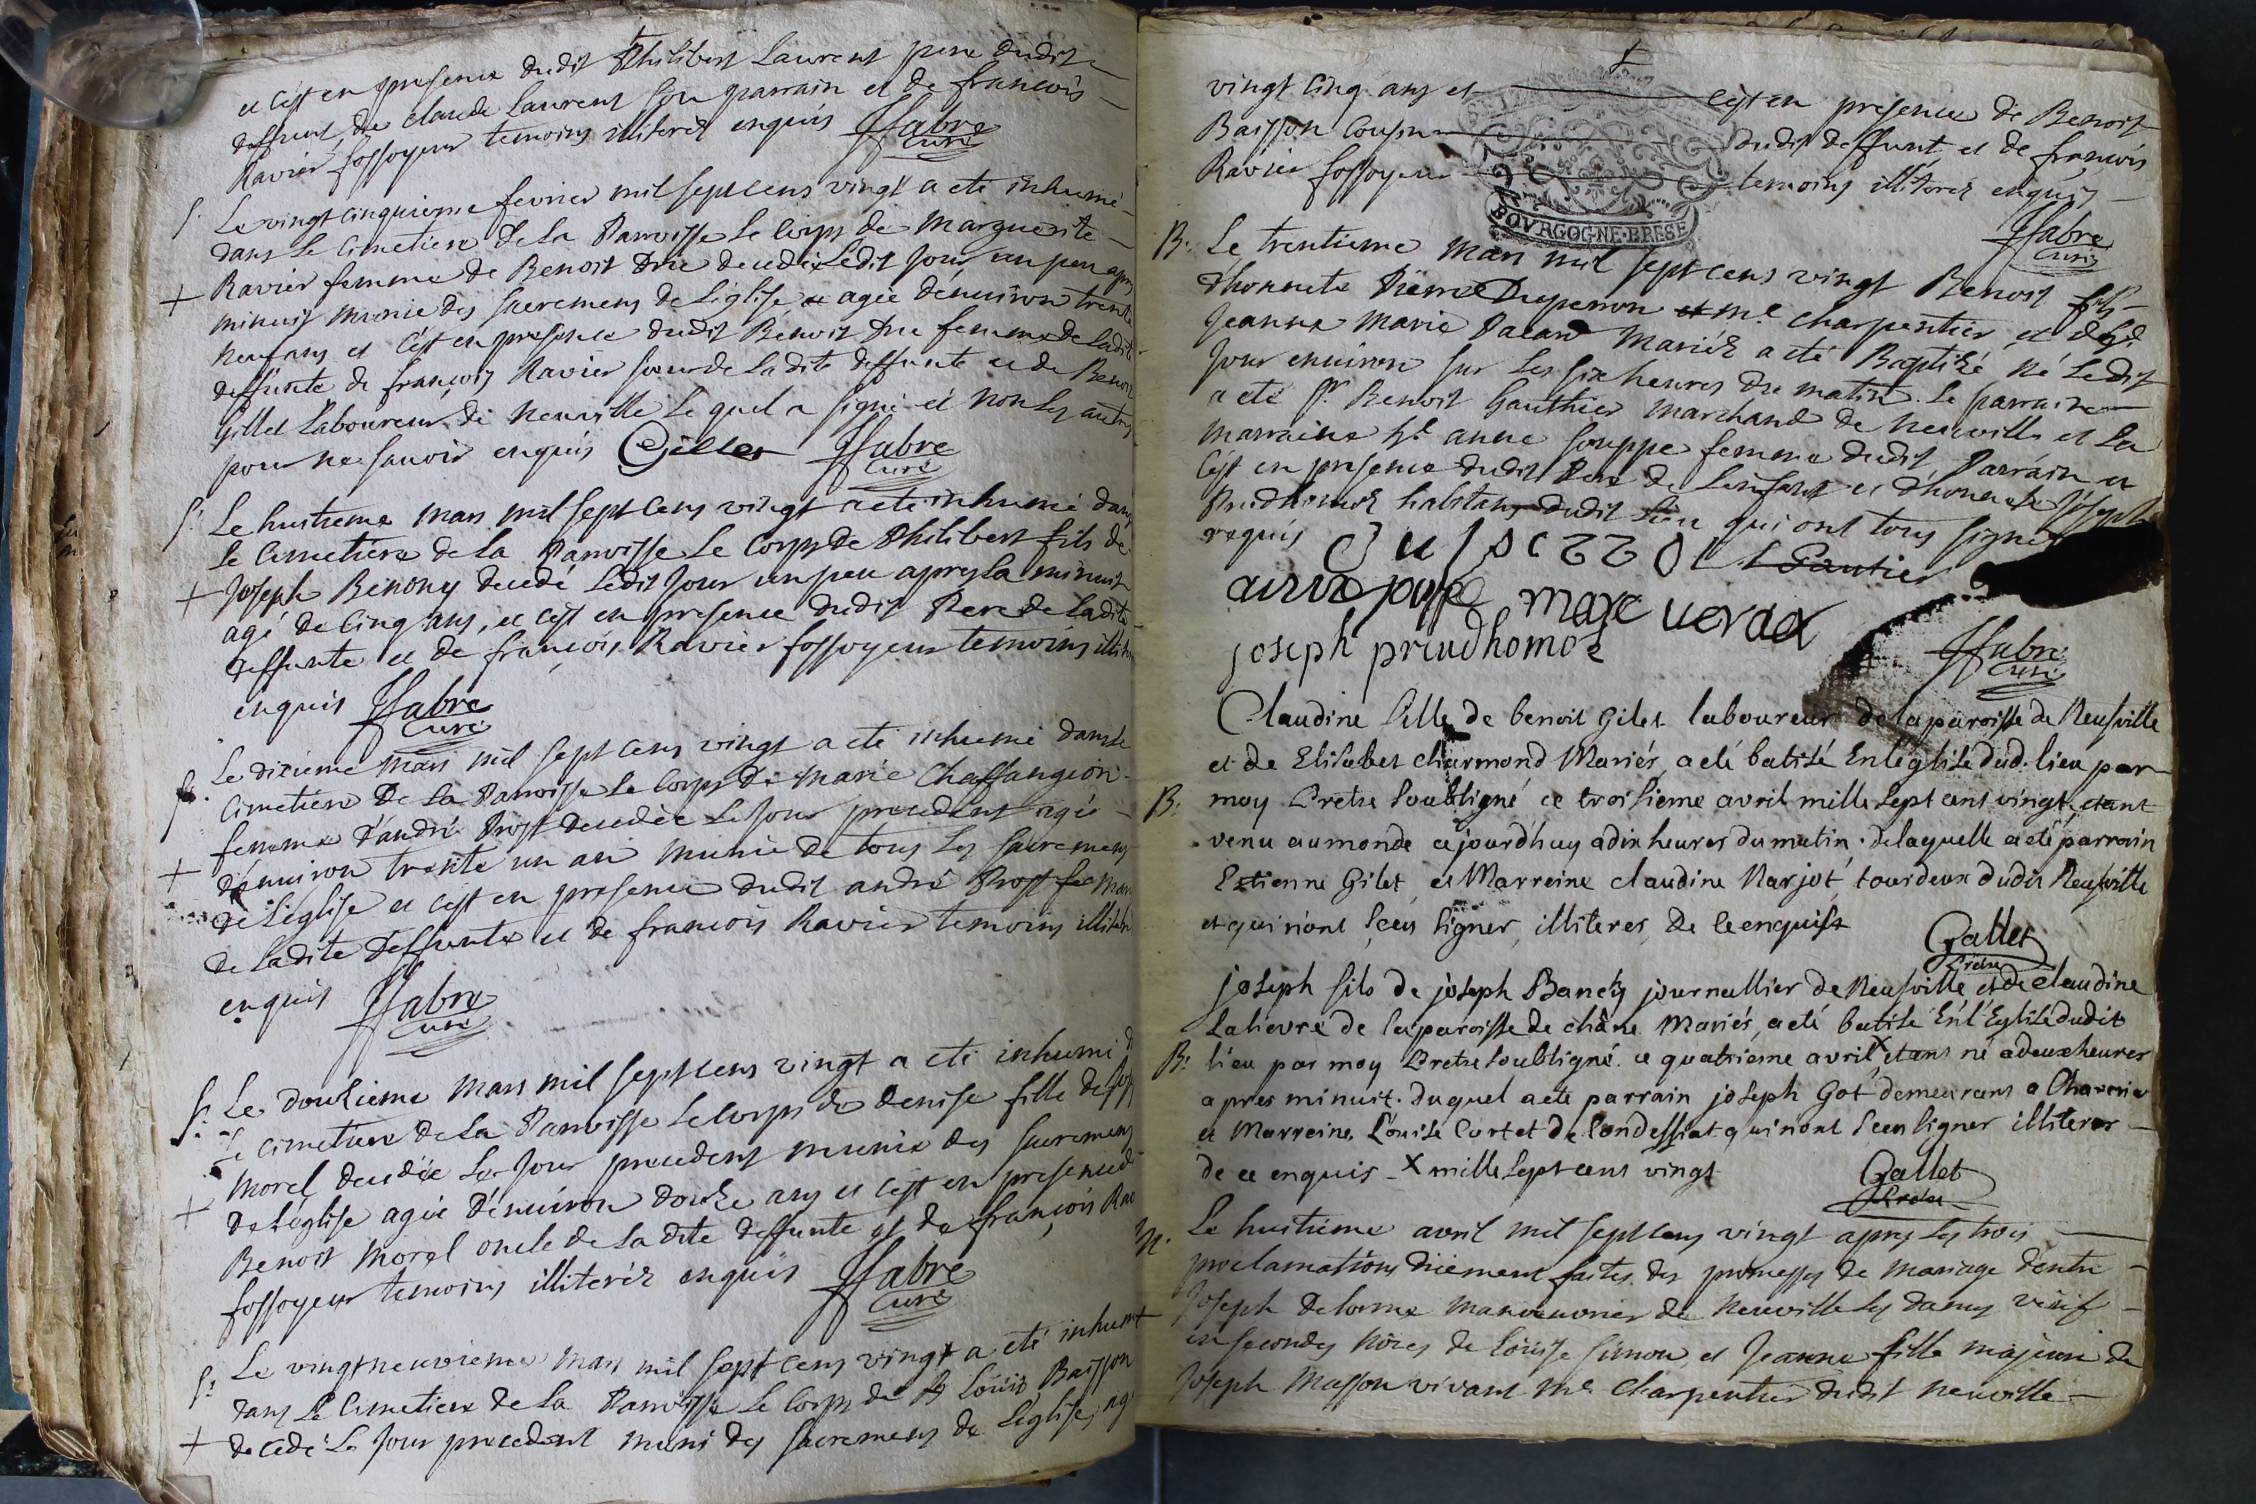 et c'est en presence dudit Philibert Laurent pere dudit
deffunt, de claude Laurent son parrain et de francois
Ravier fossoyeur temoins illiterés enquis ffabre
curé
S. Le vingtcinquieme fevrier mil sept cens vingt a eté inhumé
dans Le Cimetiere de La Parroisse Le Corps de Marguerite
+ Ravier femme de Benoit Drie decedé Ledit jour un peu apres
minuit munie des sacremens de L'eglise agée d'enuiron trente
neuf ans et c'est en presence dudit Benoit Drie femme de Ladite
deffunte de françois Ravier soeur de La dite deffunte et de Benoit
Gillet Laboureur de neuville Lequel a signé et non Les autres
pour ne sauoir enquis Gillet ffabre
curé
S. Le huitieme mars mil sept cens vingt a eté inhumé dans
Le Cimetiere de La Parroisse Le Corps de Philibert fils de
+ Joseph Benony decedé Ledit jour un peu apres La minuit
agé de cinq ans, et c'est en presence dudit Pere de Ladite
deffunte et de françois Ravier fossoyeur temoins
enquis ffabre
curé
S. Le dixieme mars mil sept cens vingt a eté inhumé dans Le
Cimetiere De La Parroisse Le Corps de Marie Chaffangeon
femme d'andré Prost decedée Le jour precedent agée
+ d'enuiron trente un an munie de tous Les sacremens
de L'eglise et c'est en presence dudit andré Prost mari
de Ladite deffunte et de francois Ravier temoins
enquis ffabre
curé
S. Le douzieme mars mil sept cens vingt a eté inhumé
Le cimetiere de La Parroisse Le Corps de denise fille de
Morel decedée Le jour precedent munie des sacremens
+ de L'eglise agée d'enuiron douze ans et c'est en presence de
Benoit Morel oncle de La dite deffunte et de françois
fossoyeur temoins illiteréz enquis ffabre
curé
S. Le vingtneuvieme mars mil sept cens vingt a eté inhumé
dans Le Cimetiere de La Parroisse Le Corps de Louis Baisson
+ decedé Le jour precedent muni des sacremens de L'eglise, agé
vingt cinq ans et c'est en presence de Benoit
Baisson Cousin dudit deffunt et de françois
Ravier fossoyeur temoins illiterez enquis
BOVRGOGNE·BRESE
ffabre
curé
B. Le trentieme mars mil sept cens vingt Benoit fils
d'honnete Pierre Duperron me charpentier et de
Jeanne Marie Pacard mariéz a eté Baptizé né Ledit
jour enuiron sur Les six heures du matin. Le parrain
a eté Sr. Benoit Gauthier marchand de neuville et La
marraine anne Souppe femme dudit Parrain et
c'est en presence dudit Pere de L'enfant et d'honnete Joseph
Prudhomez habitans dudit Lieu qui ont tous signé
requis
Gautier
marc
joseph preudhomos
ffabre
curé
Claudine fille de benoit Gilet laboureur de la paroisse de Neufville
et de Elisabet charmond Mariés, a eté batisé En léglise dud. lieu par
B. moy Pretre soubsigné ce troisieme avril mille sept cent vingt, etant
venu au monde cejourdhuy a dix heures du matin. de laquelle a eté parrain
Estienne Gilet, et Marreine claudine Narjot, tous deux dudit Neufville
et qui n'ont sceu signer, illiteres, de ce enquist
Gallet
Pretre
joseph fils de joseph Banchy journallier de Neufville et de claudine
Lalievre de la paroisse de châne Mariés, a eté batisé En l'Eglise dudit
B. lieu par moy Pretre soubsigné ce quatrieme avril X etant né a deux heures
apres minuit. duquel a eté parrain joseph Got demeurant a
et Marreine Louise Cortet de Condessiat qui n'ont sceu signer illiteres
de ce enquis - X mille sept cent vingt
Gallet
Pretre
M. Le huitieme avril mil sept cens vingt apres Les trois
proclamations duement faites des promesses de mariage d'entre
Joseph delorme manouvrier de neuville Les dames veuf
en secondes nôces de Loüise Simon, et Jeanne fille majeure de
Joseph Masson vivant me. Charpentier dudit neuville